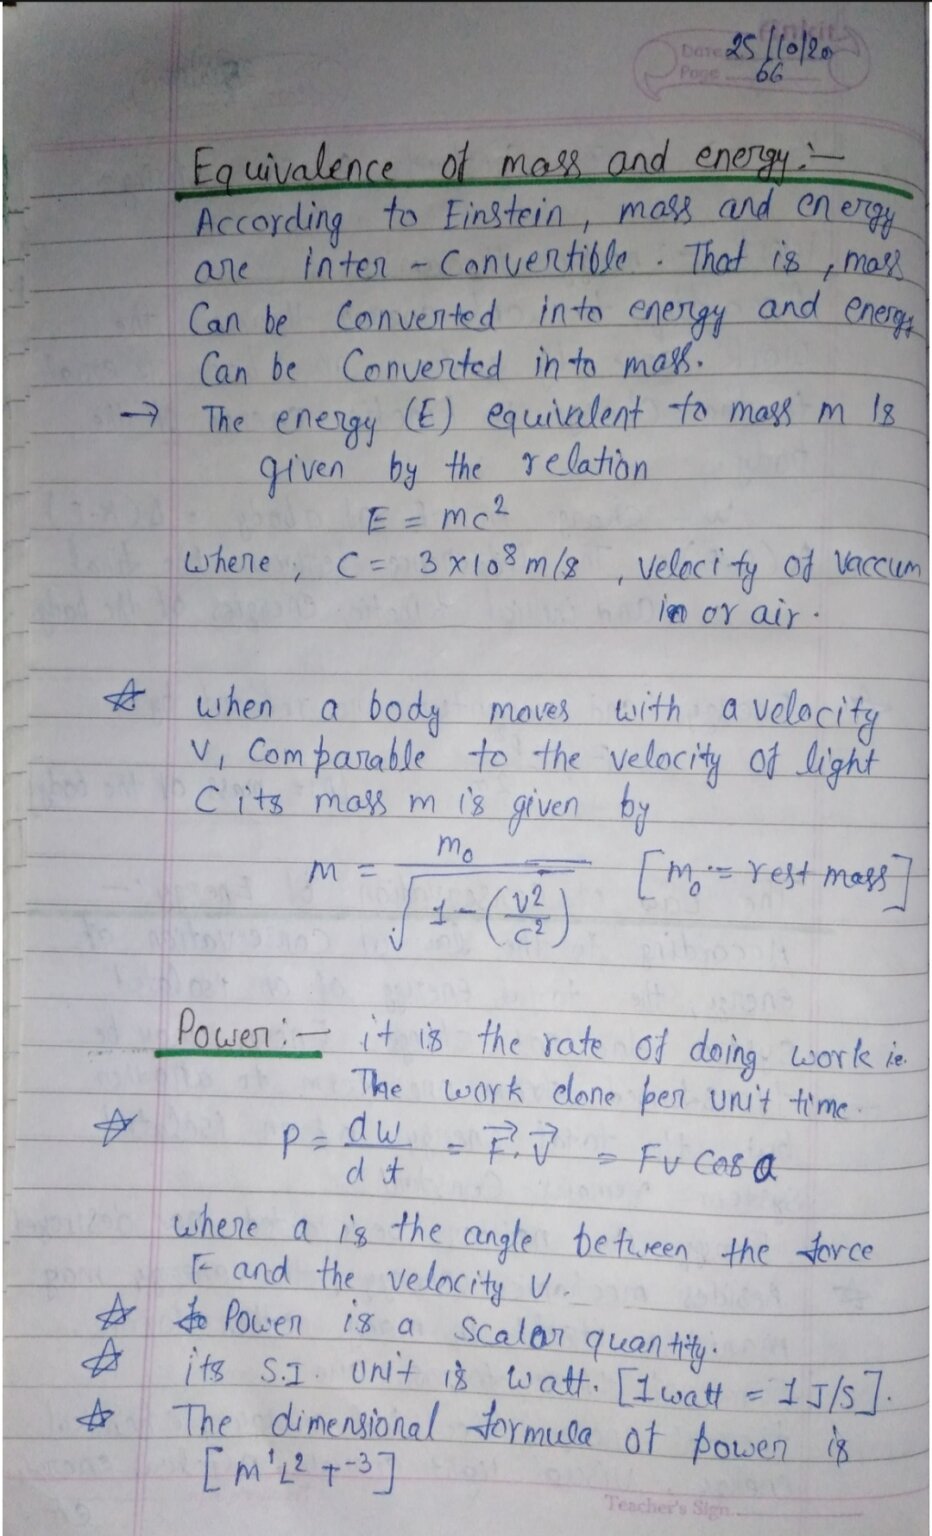 Ankit
Date 25/10/20
Page 66
Equivalence of mass and energy:-
According to Einstein, mass and energy
are inter-Convertible. That is, mass
Can be Converted into energy and energy
Can be Converted in to mass.
→ The energy (E) equivalent to mass m is
given by the relation
E = mc²
where, C = 3×10⁸ m/s, velocity of vaccum
in or air.
☆ when a body moves with a velocity
V, Comparable to the velocity of light
C its mass m is given by
m = m₀ / √(1-(v²/c²)) [m₀ := rest mass]
Power:- it is the rate of doing work ie.
The work done per unit time.
☆ P = dw/dt = F⃗.V⃗ = Fv Cos a
where a is the angle between the force
F and the velocity V.
☆ Power is a Scalar quantity.
☆ its S.I. Unit is watt. [1 watt = 1 J/S].
☆ The dimensional formula of power is
[m¹L²T⁻³]
Teacher's Sign